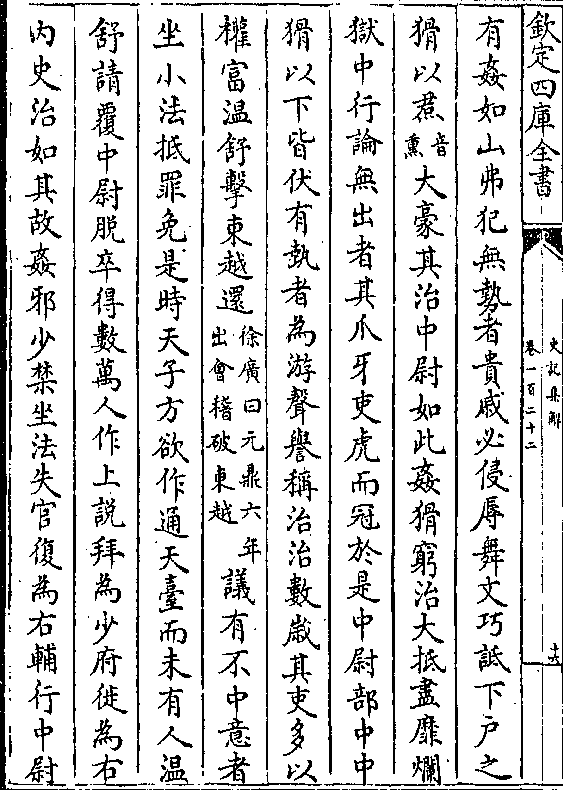 欽定四庫全書
史記集解
卷一百二十二
十六
有姦如山弗犯無勢者貴戚必侵辱舞文巧詆下户之
猾以焄音熏大豪其治中尉如此姦猾窮治大抵盡靡爛
獄中行論無出者其爪牙吏虎而冠於是中尉部中中
猾以下皆伏有埶者為游聲譽稱治治數嵗其吏多以
權富温舒擊東越還徐廣曰元鼎六年出會稽破東越議有不中意者
坐小法抵罪免是時天子方欲作通天臺而未有人温
舒請覆中尉脱卒得數萬人作上說拜為少府徙為右
内史治如其故姦邪少禁坐法失官復為右輔行中尉